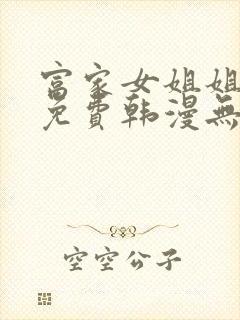 富家女姐姐
免費韩漫無
空空公子